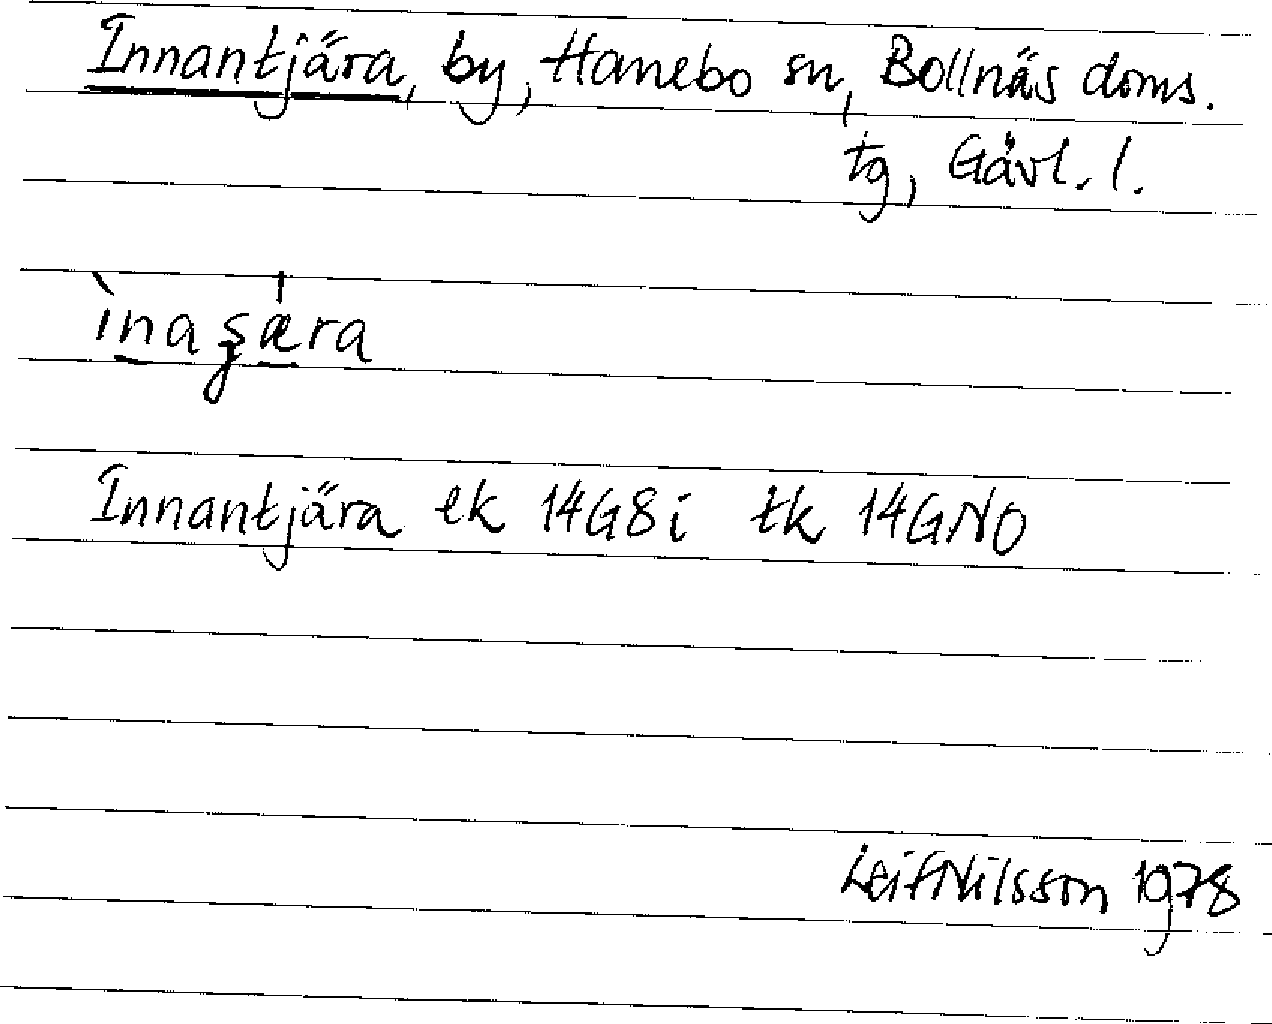 Innantjära, by, Hanebo sn, Bollnäs doms.
tg, Gävl. l.
Innantjära ek 14G8i tk 14GNO
Leif Nilsson 1978